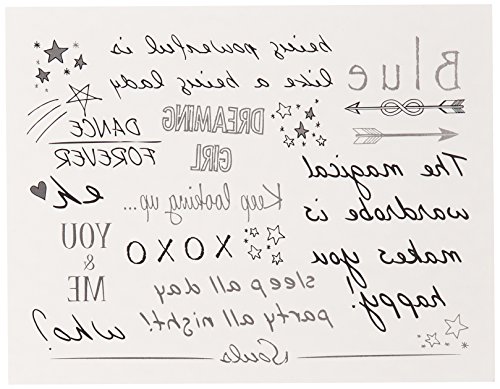 Blue
being powerful is
like a being lady
DREAMING
GIRL
DANCE
FOREVER
The magical
wardrobe is
makes you
happy!
Keep looking up...
eh
XOXO
YOU
&
ME
sleep all day
party all night!
who?
Souls